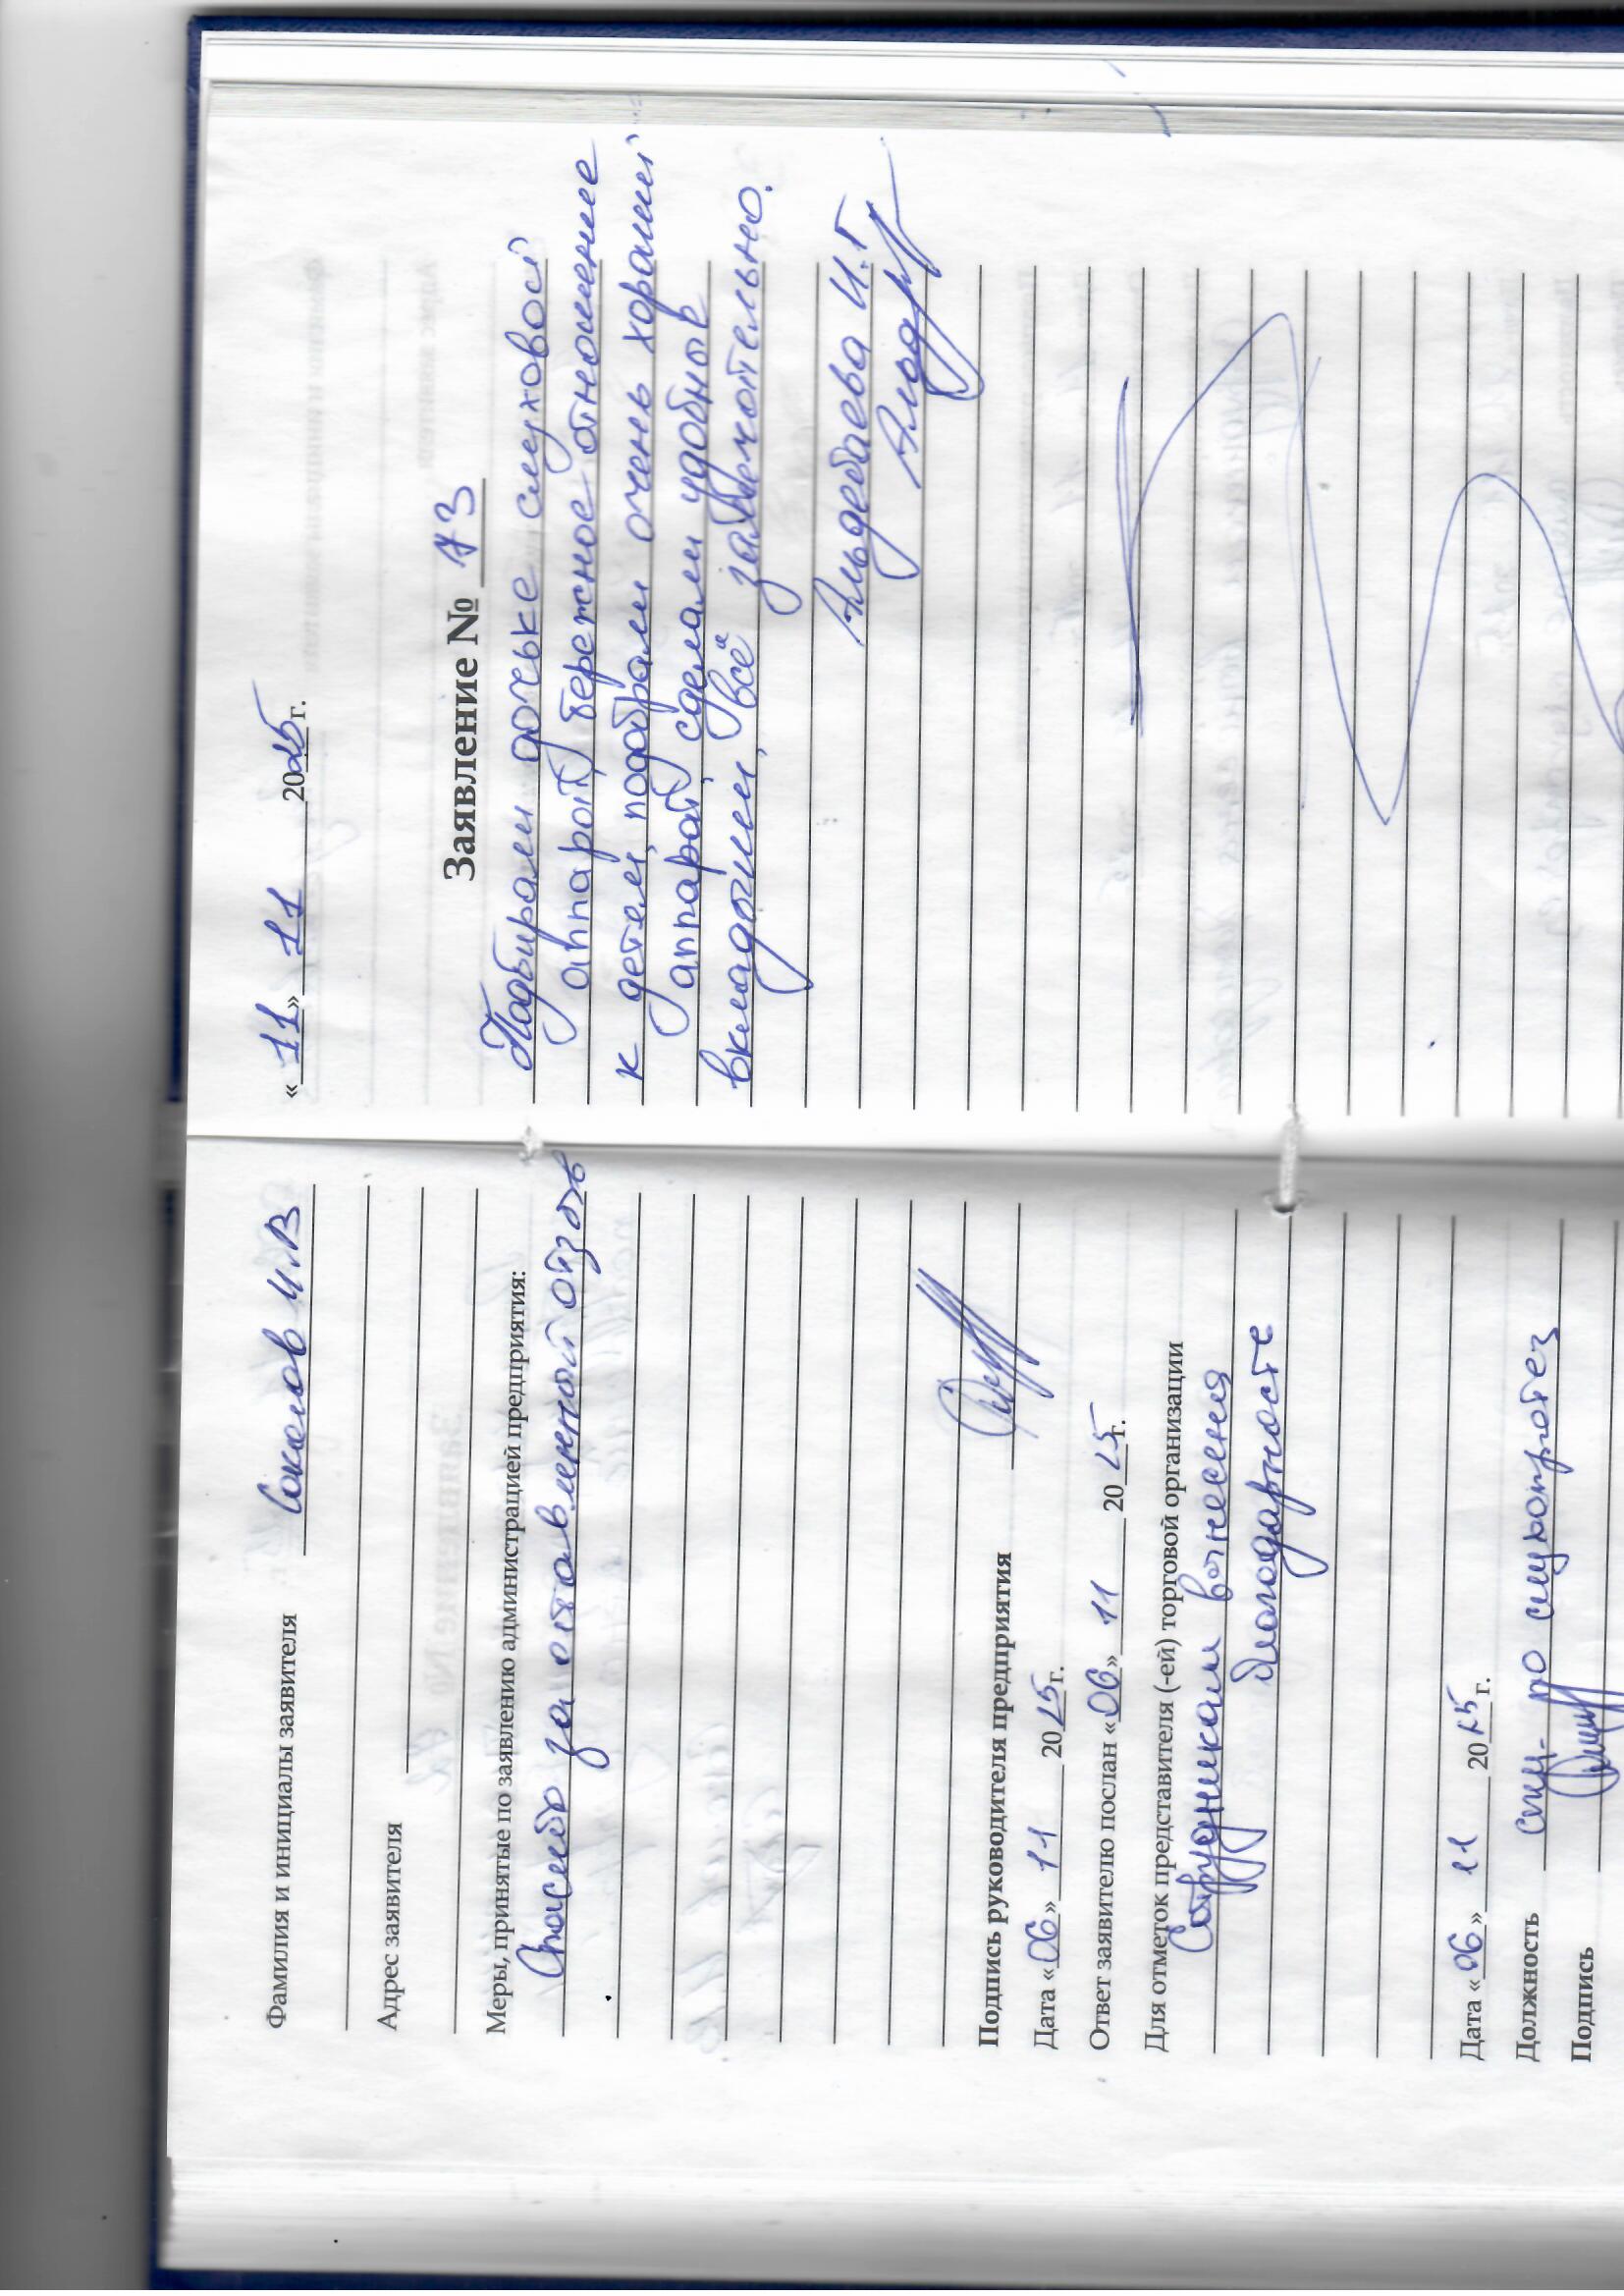 Фамилия и инициалы заявителя Соколов И.В
Адрес заявителя
Меры, принятые по заявлению администрацией предприятия:
Спасибо за оставленный отзыв
Подпись руководителя предприятия
Дата «06» 11 2025г.
Ответ заявителю послан «06» 11 2025г.
Для отметок представителя (-ей) торговой организации
Сотрудникам вынесения
благодарносте
Дата «06» 11 2025г.
Должность спец- по слухопротез
Подпись
«11» 11 2025г.
Заявление № 73
Подбирали дочьке слуховой
аппарат, бережное отношение
к детям, подобрали очень хороший
аппарат, сделали удобные
вкладыши, "всё" замечательно.
Альдебаева И.Г